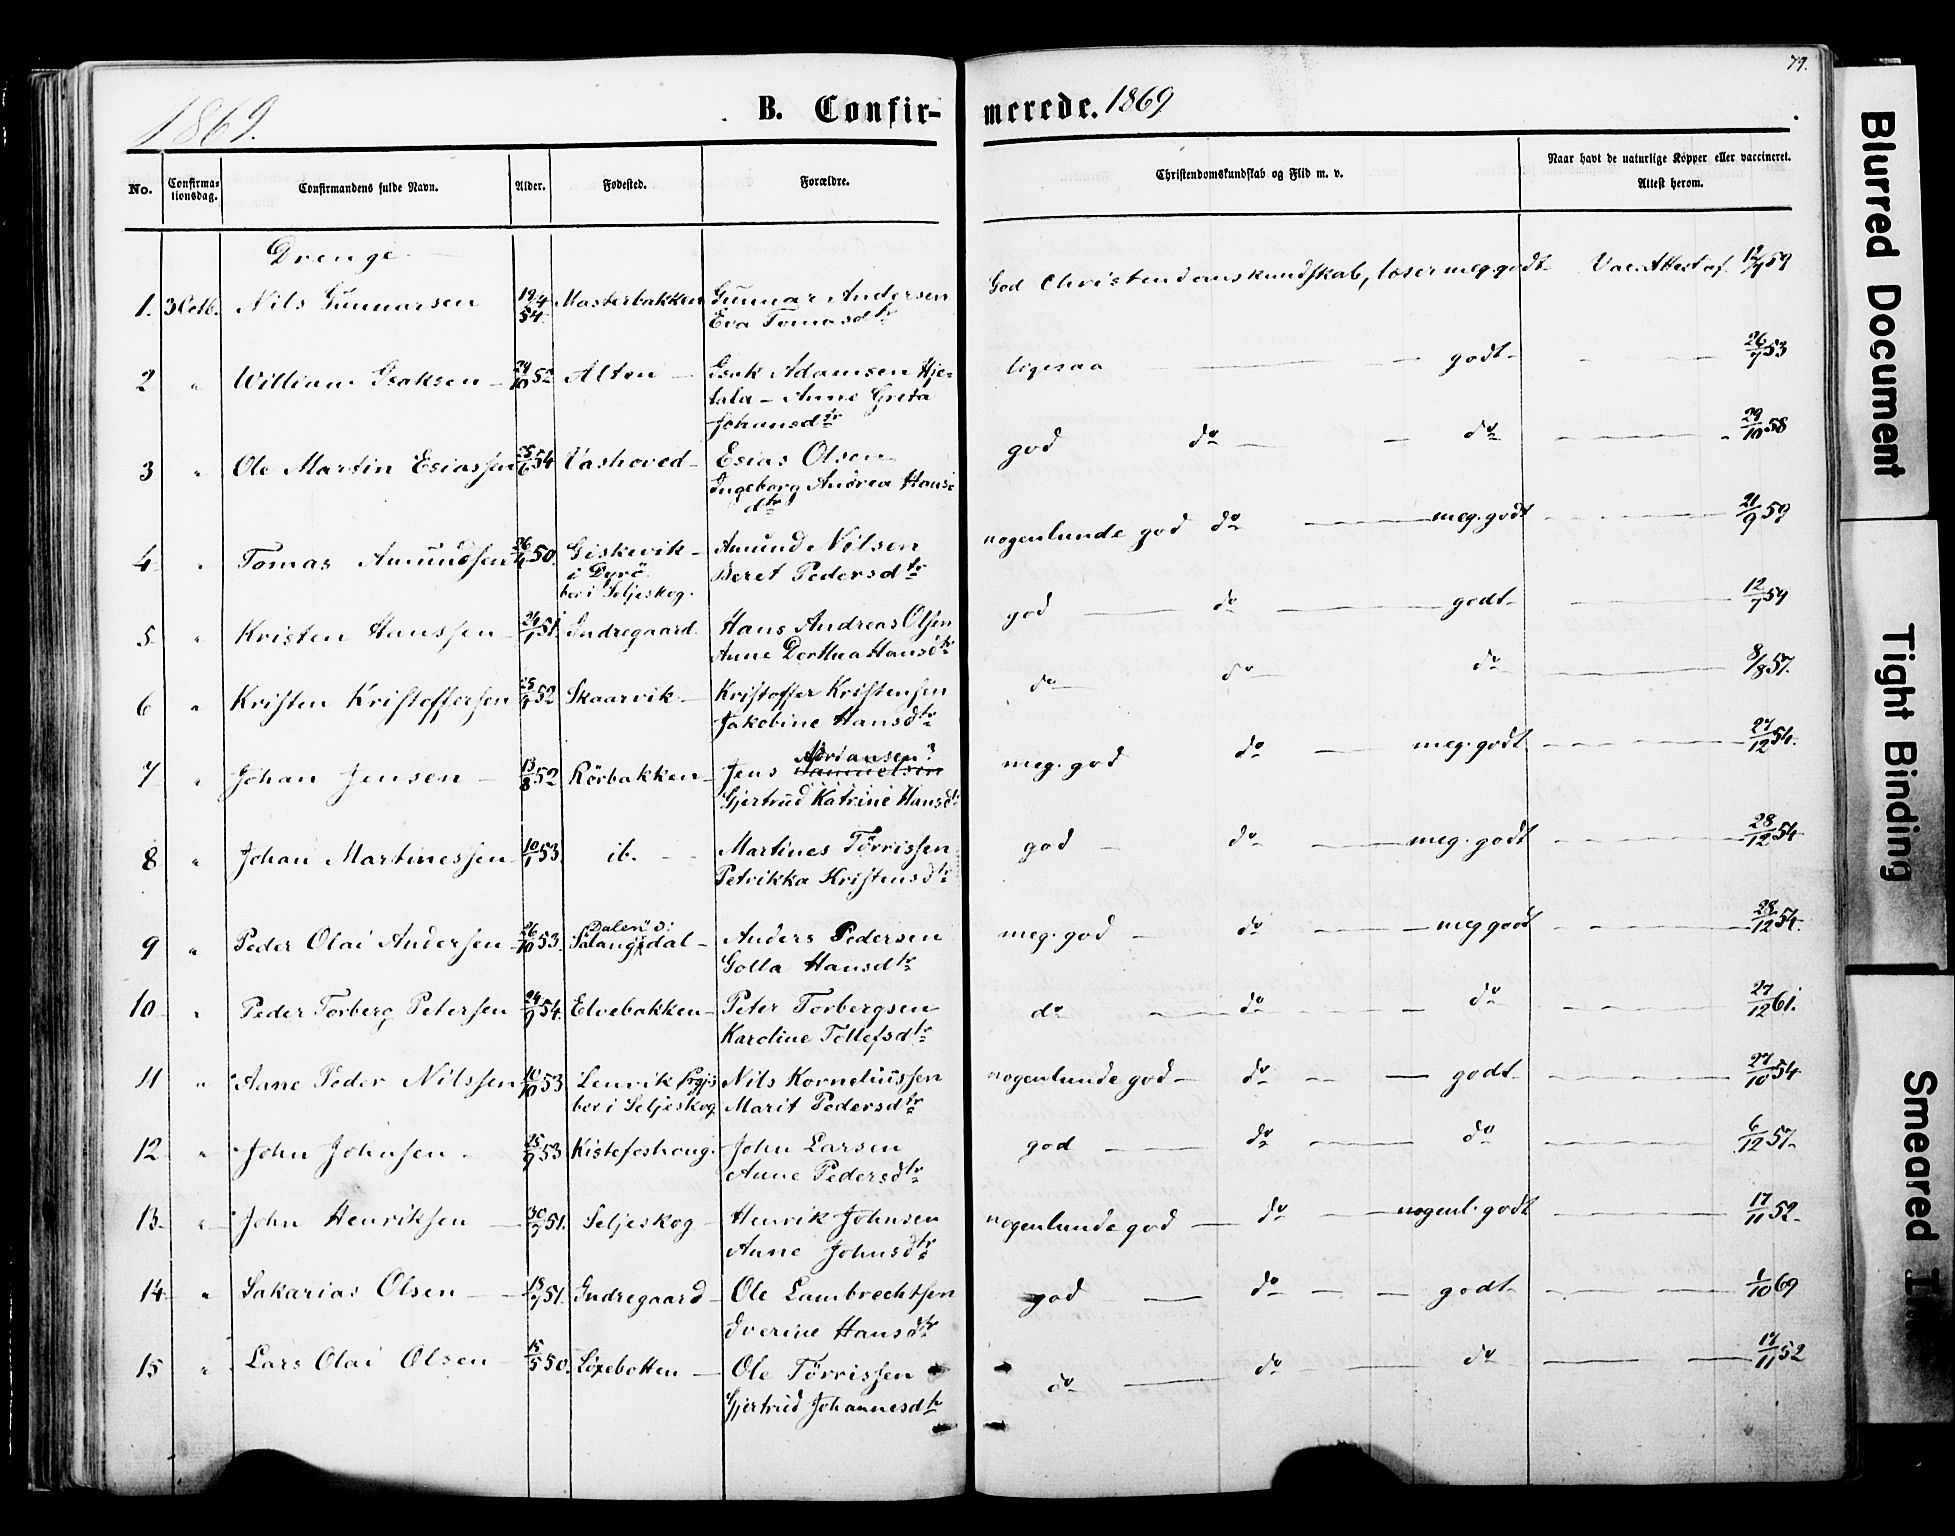 79.
1869.
B. Confir-
merede. 1869
No.
Confirma-
tionsdag.
Confirmandens fulde Navn.
Alder.
Fødested.
Forældre.
Christendomskundskab og Flid m. v.
Naar havt de naturlige Kopper eller vaccineret.
Attest herom.
Drenge
1. 3 Octb. Nils Gunnarsen 19/4 54. Masterbakken Gunnar Andersen
Eva Tomasdtr
God Christendomskundskab, læser meg. godt Vac. Attest af 12/7 59
2 " William Isaksen 24/10 52 Alten Isak Adamsen Hje-
tala - Anne Greta
Johansdtr
ligesaa godt 26/7 53
3 " Ole Martin Esiassen 25/6 54 Vashoved Esias Olsen
Ingeborg Andrea Hans-
dtr
god do do 29/10 58
4 " Tomas Amundsen 26/4 50. Giskevik Amund Nilsen
i Dyrö Beret Pedersdtr
bor i Seljeskog.
nogenlunde god do meg. godt 21/9 59
5 " Kristen Hanssen 24/1 51. Indregaard Hans Andreas Olsen
Anne Dorthea Hansdtr
god do godt 12/7 59
6 " Kristen Kristoffersen 25/9 52 Skaarvik Kristoffer Kristensen
Jakobine Hansdtr
do do do 8/8 57.
7 " Johan Jensen 13/8 52 Rörbakken Jens Samuelsen
Adriansen?
Gjertrud Katrine Hansdtr
meg. god do meg. godt 27/12 54.
8 " Johan Martinessen 10/1 53. ib. Martines Törrissen
Petrikka Kristensdtr
god do meg. godt 28/12 54
9 " Peder Olai Andersen 26/10 53. Salangsdal Anders Pedersen
Golla Hansdtr
meg. god do meg godt 28/12 54.
10 " Peder Torberg Petersen 24/9 54. Elvebakken Peter Torbergsen
Karoline Tollefsdtr
do do do 27/12 61.
11 " Aane Peder Nilssen 10/10 53 Lenvik Nils Korneliussen
bor i Seljeskog Marit Pedersdtr
nogenlunde god do godt 27/10 54
12 " John Johnsen 25/9 53 Kistefoshoug. John Larsen
Anne Pedersdtr
god do do 6/12 57
13 " John Henriksen 30/7 51. Seljeskog Henrik Johnsen
Anne Johnsdtr
nogenlunde god do nogenl. godt 17/11 52
14 " Sakarias Olsen 15/7 51. Indregaard Ole Lambrechtsen
Iverine Hansdtr
god do godt 1/10 69
15 " Lars Olai Olsen 15/5 50. Löxebotten Ole Törrissen
Gjertrud Johannesdtr
do do do 17/11 52
Blurred Document
Tight Binding
Smeared